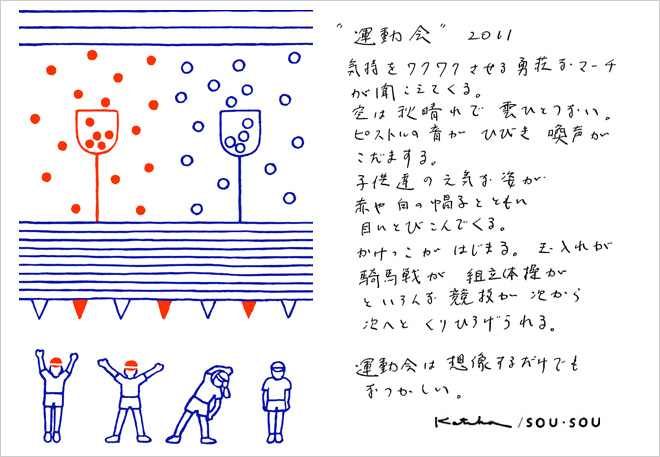 "運動会" 2011
気持をワクワクさせる勇荘なマーチ
が聞こえてくる。
空は秋晴れで 雲ひとつない。
ピストルの音が ひびき 喚声が
こだまする。
子供達の元気な姿が
赤や白の帽子とともに
目にとびこんでくる。
かけっこが はじまる。玉入れが
騎馬戦が 組立体操が
といろんな 競技が 次から
次へと くりひろげられる。
運動会は 想像するだけでも
なつかしい。
Katsuha /SOU・SOU